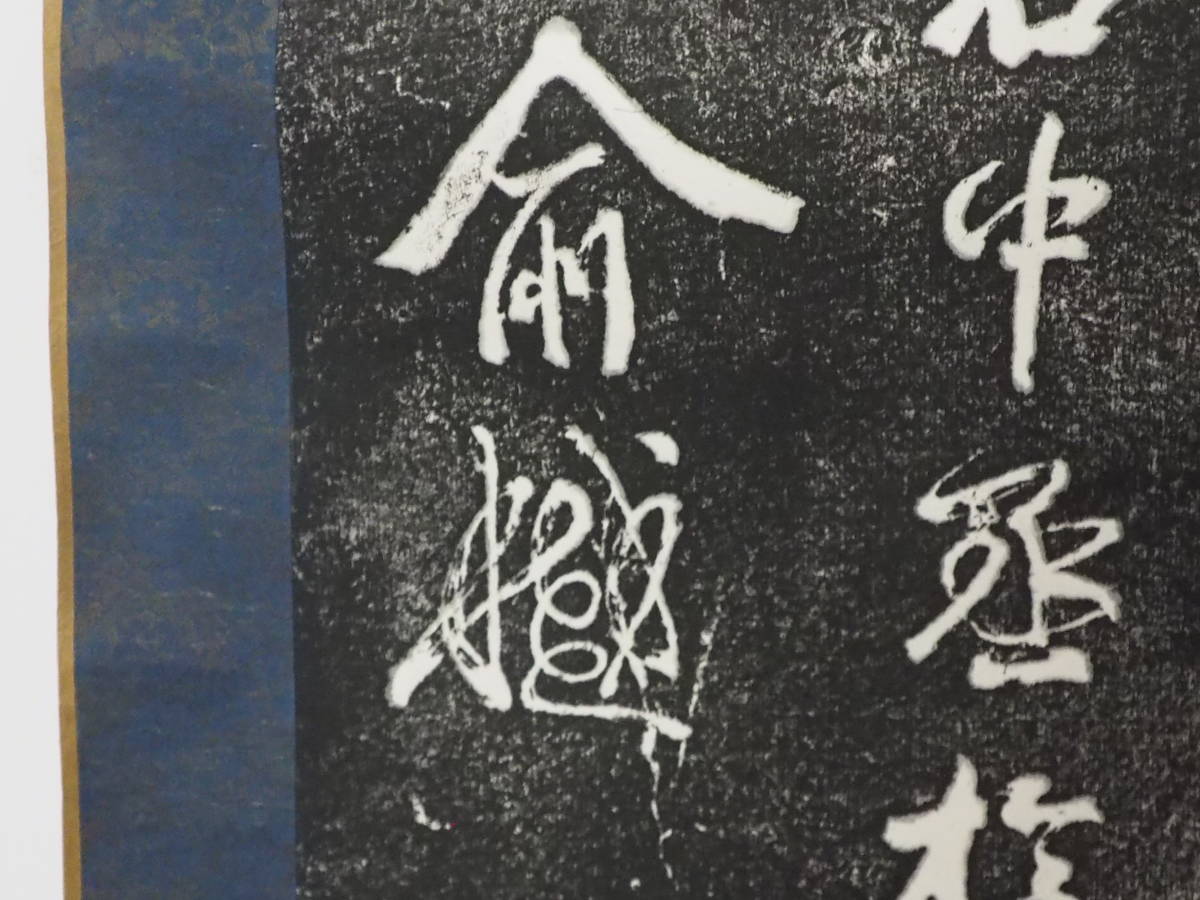 中丞於
俞樾